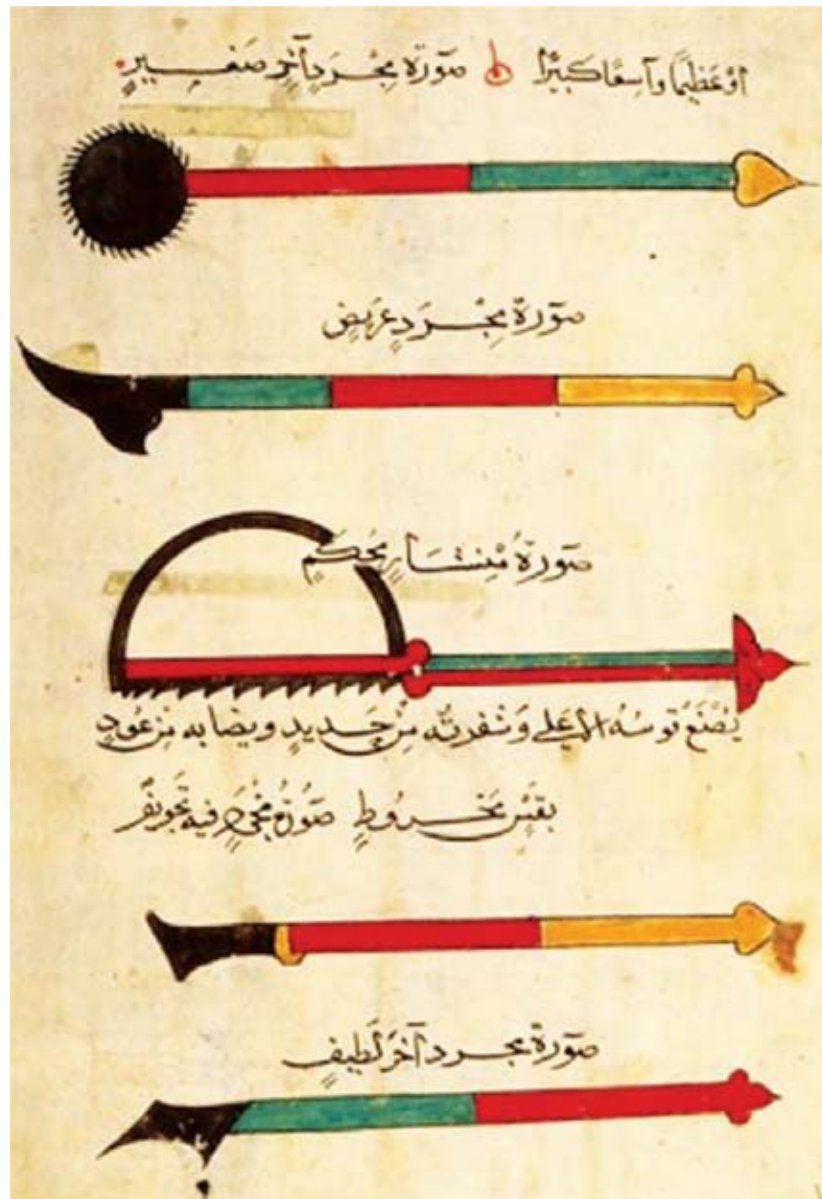 اوْ عَظِيمًا وآسِعًا كَبِيرًا صَورَة مِجْرَدٍ آخَرٍ صَغِيرٍ
صَورَة مِجْرَدٍ عَرِيضٍ
صَورَةُ مِنْشَارٍ مُحْكَمٍ
يُصْنَعُ قوسُهُ الاعلي وَشَفرتُه مِنْ حَدِيدٍ ونِصَابه مِن عُودٍ
بَقْسٍ مَخْرُوطٍ صَورَة مِجْرَدٍ فيه تجويف
صَورَة مجرد آخَرَ لَطِيفٍ